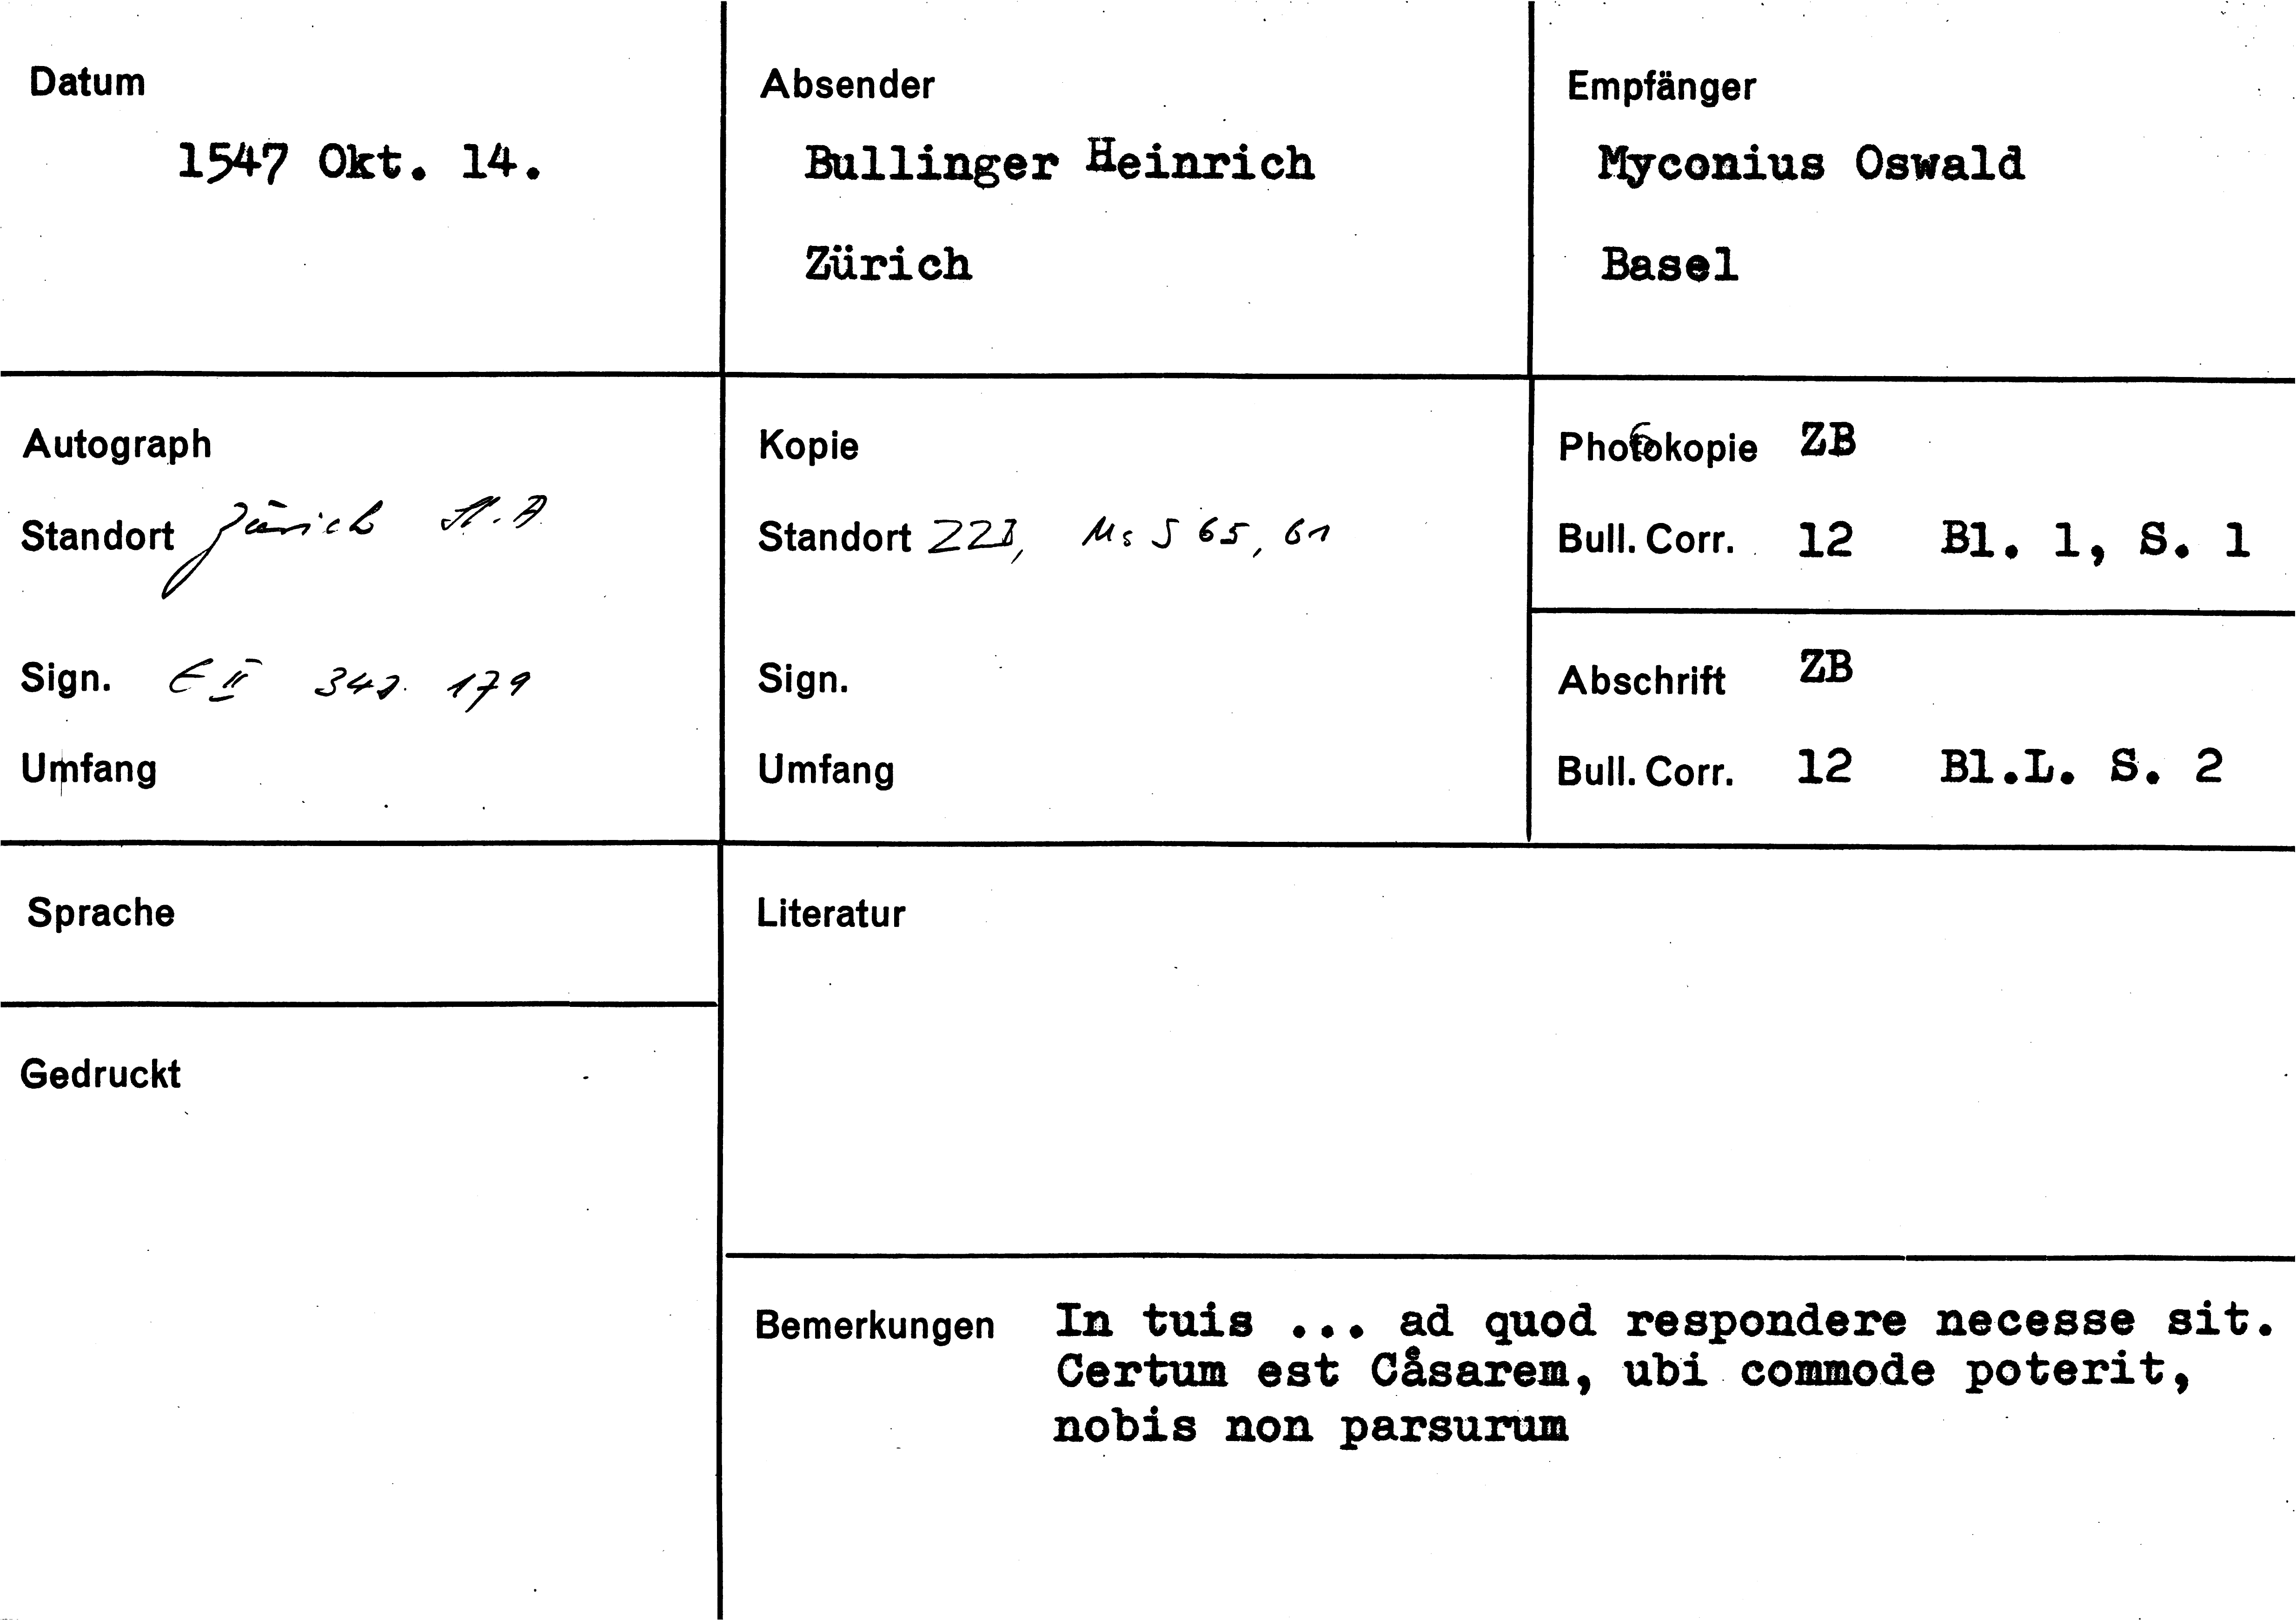 Datum
1547 Okt. 14.
Absender
Bullinger Heinrich
Zürich
Empfänger
Myconius Oswald
Basel
Autograph
Standort Zürich St. A
Sign. E II 342. 179
Umfang
Kopie
Standort ZZB, Ms S 65, 61
Sign.
Umfang
Photokopie ZB
Bull. Corr. 12 Bl. 1, S. 1
Abschrift ZB
Bull. Corr. 12 Bl.L. S. 2
Sprache
Gedruckt
Literatur
Bemerkungen In tuis ... ad quod respondere necesse sit.
Certum est Cåsarem, ubi commode poterit,
nobis non parsurum